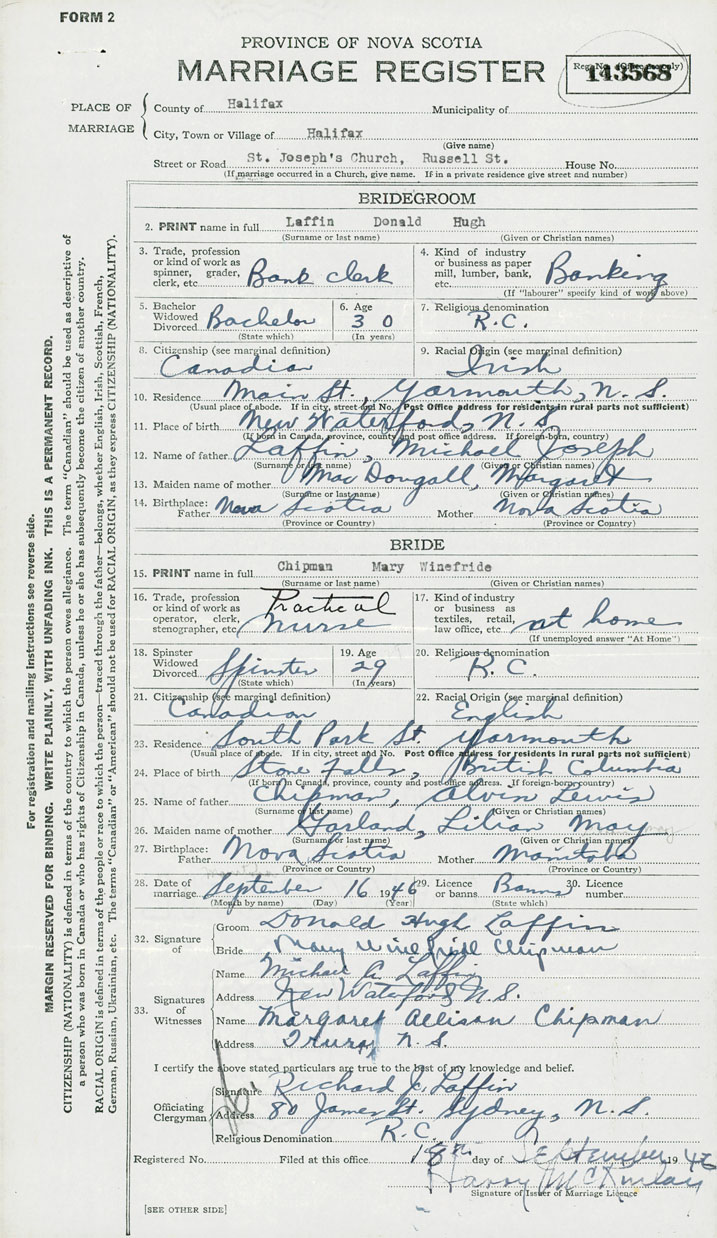 FORM 2
PROVINCE OF NOVA SCOTIA
MARRIAGE REGISTER
Reg. No. (Office use only)
143568
PLACE OF MARRIAGE
County of Halifax Municipality of
City, Town or Village of Halifax
(Give name)
Street or Road St. Joseph's Church, Russell St. House No.
(If marriage occurred in a Church, give name. If in a private residence give street and number)
BRIDEGROOM
2. PRINT name in full Laffin Donald Hugh
(Surname or last name) (Given or Christian names)
3. Trade, profession or kind of work as spinner, grader, clerk, etc. Bank clerk
4. Kind of industry or business as paper mill, lumber, bank, etc. Banking
(If "labourer" specify kind of work above)
5. Bachelor Widowed Divorced Bachelor
(State which)
6. Age 30
(In years)
7. Religious denomination R.C.
8. Citizenship (see marginal definition) Canadian
9. Racial Origin (see marginal definition) Irish
10. Residence Main St., Yarmouth, N. S.
(Usual place of abode. If in city, street and No. Post Office address for residents in rural parts not sufficient)
11. Place of birth New Waterford, N. S.
(If born in Canada, province, county and post office address. If foreign-born, country)
12. Name of father Laffin, Michael Joseph
(Surname or last name) (Given or Christian names)
13. Maiden name of mother MacDougall, Margaret
(Surname or last name) (Given or Christian names)
14. Birthplace: Father Nova Scotia Mother Nova Scotia
(Province or Country) (Province or Country)
BRIDE
15. PRINT name in full Chipman Mary Winefride
(Surname or last name) (Given or Christian names)
16. Trade, profession or kind of work as operator, clerk, stenographer, etc. Practical nurse
17. Kind of industry or business as textiles, retail, law office, etc. at home
(If unemployed answer "At Home")
18. Spinster Widowed Divorced Spinster
(State which)
19. Age 29
(In years)
20. Religious denomination R.C.
21. Citizenship (see marginal definition) Canadian
22. Racial Origin (see marginal definition) English
23. Residence South Park St. Yarmouth
(Usual place of abode. If in city, street and No. Post Office address for residents in rural parts not sufficient)
24. Place of birth Falls, British Columbia
(If born in Canada, province, county and post office address. If foreign-born, country)
25. Name of father Chipman, Alvin Lewis
(Surname or last name) (Given or Christian names)
26. Maiden name of mother Garland, Lilian May
(Surname or last name) (Given or Christian names)
27. Birthplace: Father Nova Scotia Mother Manitoba
(Province or Country) (Province or Country)
28. Date of marriage September 16 1946
(Month by name) (Day) (Year)
29. Licence or banns Banns
(State which)
30. Licence number
32. Signature of
Groom Donald Hugh Laffin
Bride Mary Winefride Chipman
33. Signatures of Witnesses
Name Michael A. Laffin
Address New Waterford N.S.
Name Margaret Allison Chipman
Address Truro, N. S.
I certify the above stated particulars are true to the best of my knowledge and belief.
Officiating Clergyman
Signature Richard J. Laffin
Address 80 James St. Sydney, N. S.
Religious Denomination R.C.
Registered No. Filed at this office 18th day of September 1946
Harry McKinlay
Signature of Issuer of Marriage Licence
[SEE OTHER SIDE]
For registration and mailing instructions see reverse side.
MARGIN RESERVED FOR BINDING. WRITE PLAINLY, WITH UNFADING INK. THIS IS A PERMANENT RECORD.
CITIZENSHIP (NATIONALITY) is defined in terms of the country to which the person owes allegiance. The term "Canadian" should be used as descriptive of
a person who was born in Canada or who has rights of Citizenship in Canada, unless he or she has subsequently become the citizen of another country.
RACIAL ORIGIN is defined in terms of the people or race to which the person—traced through the father—belongs, whether English, Irish, Scottish, French,
German, Russian, Ukrainian, etc. The terms "Canadian" or "American" should not be used for RACIAL ORIGIN, as they express CITIZENSHIP (NATIONALITY).